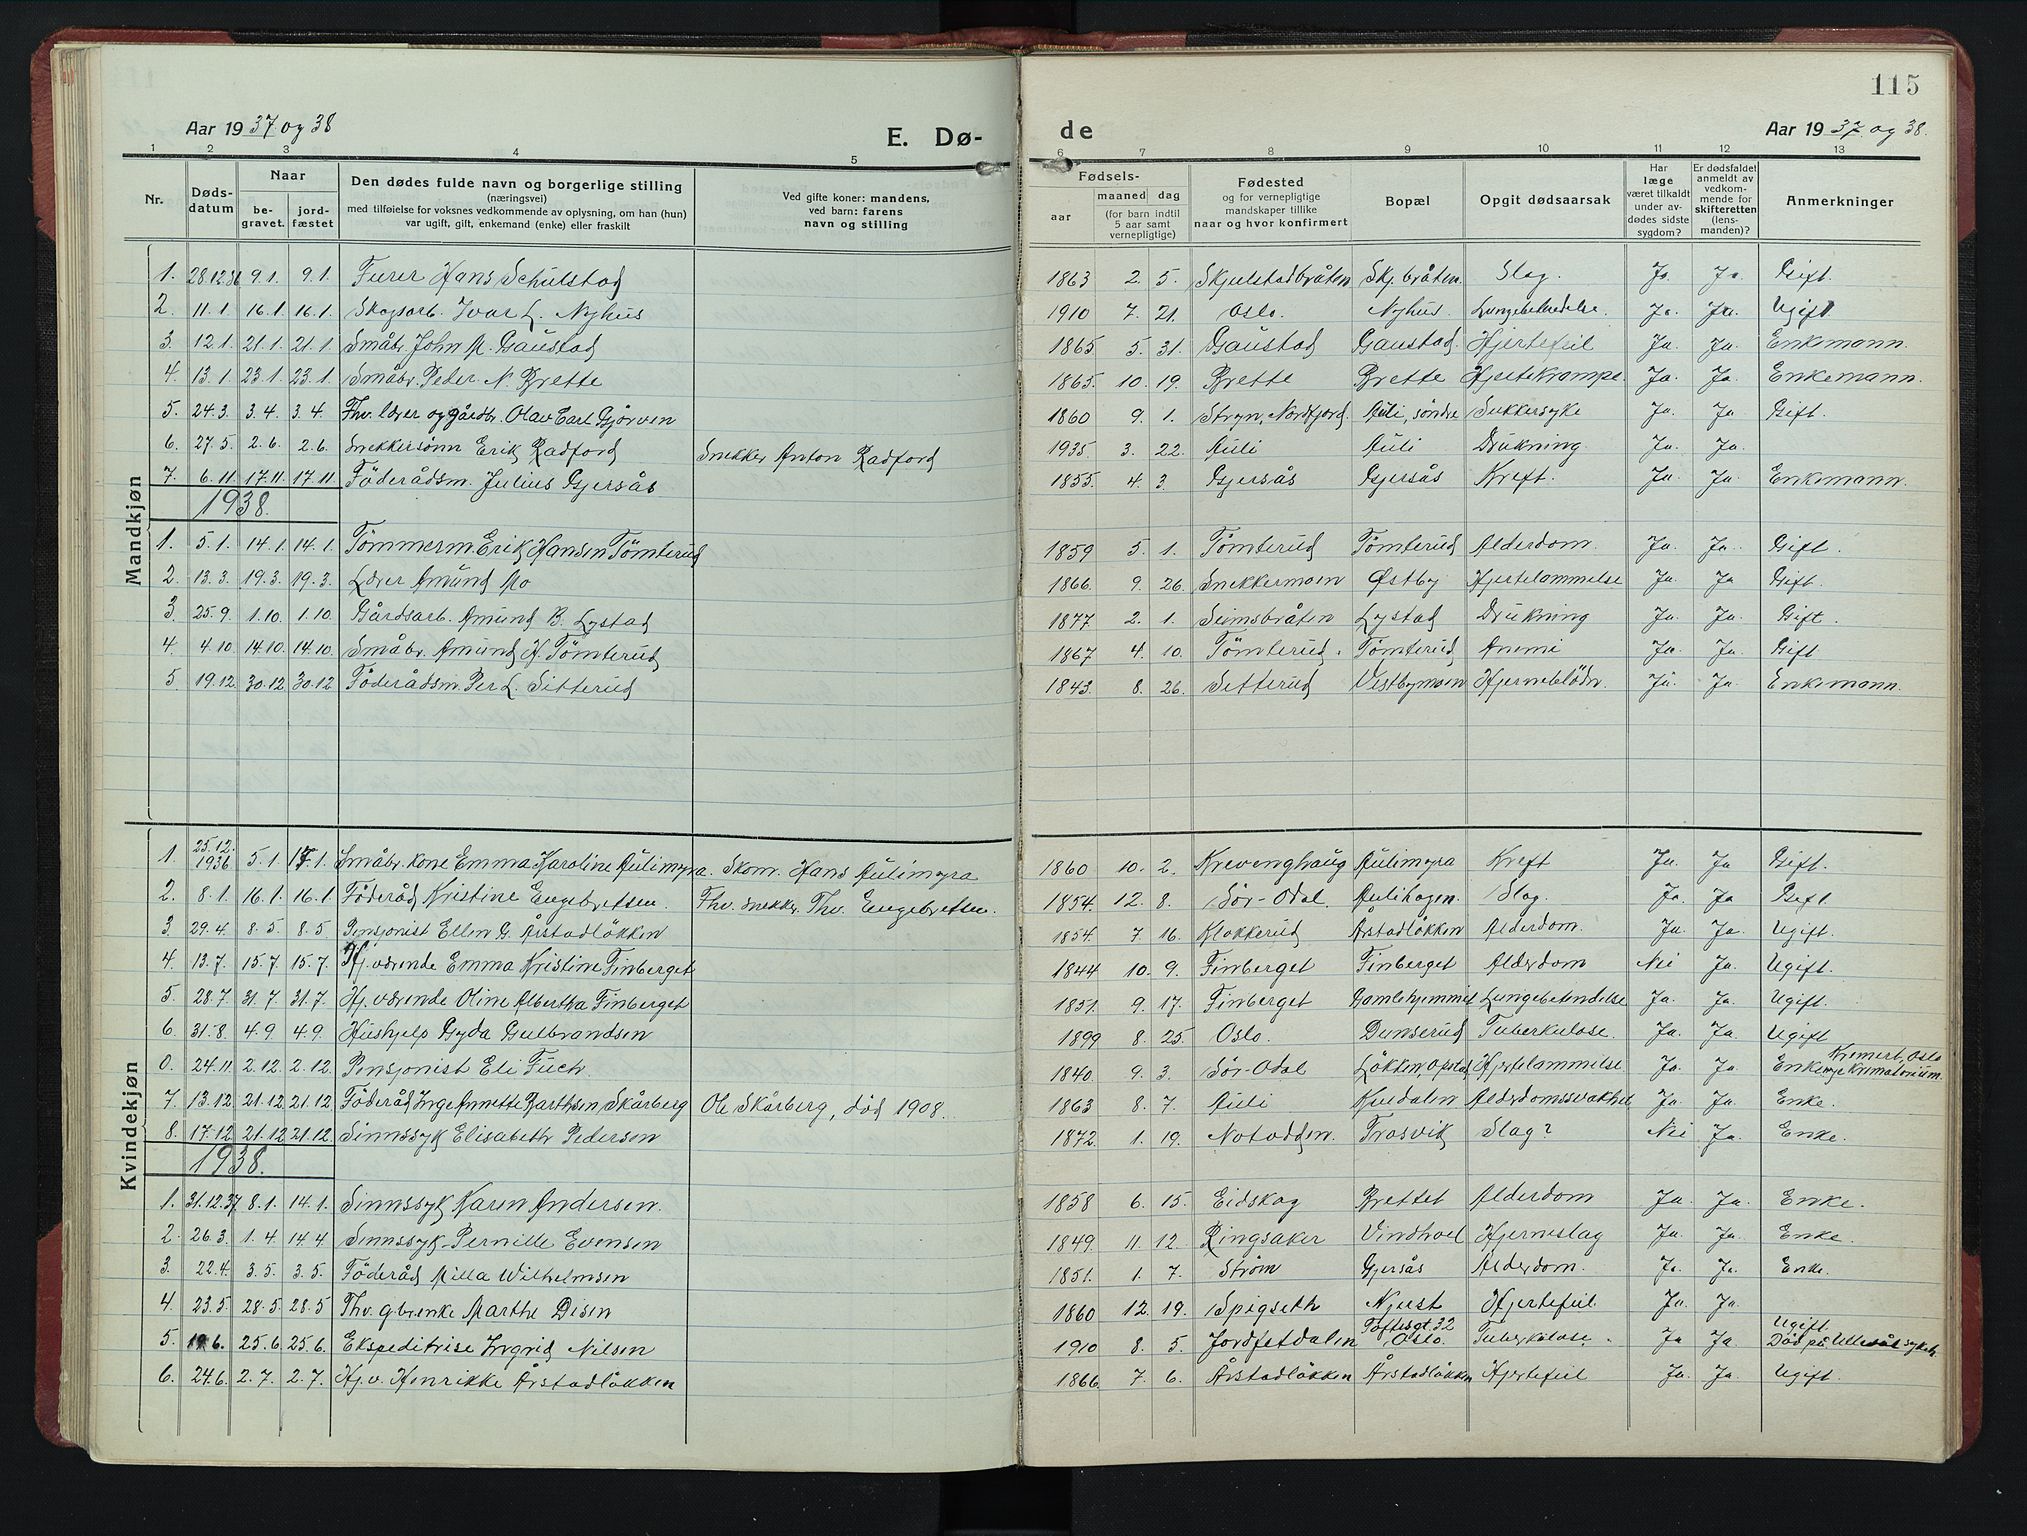 115
Aar 1937 og 38
E. Dø-
de
Aar 1937 og 38.
1 2 3 4 5 6 7 8 9 10 11 12 13
Nr.
Døds-
datum
Naar
be-
gravet.
jord-
fæstet
Den dødes fulde navn og borgerlige stilling
(næringsvei)
med tilføielse for voksnes vedkommende av oplysning, om han (hun)
var ugift, gift, enkemand (enke) eller fraskilt
Ved gifte koner: mandens,
ved barn: farens
navn og stilling
Fødsels-
aar
maaned
dag
(for barn indtil
5 aar samt
vernepligtige)
Fødested
og for vernepligtige
mandskaper tillike
naar og hvor konfirmert
Bopæl
Opgit dødsaarsak
Har
læge
været tilkaldt
under av-
dødes sidste
sygdom?
Er dødsfaldet
anmeldt av
vedkom-
mende for
skifteretten
(lens-
manden)?
Anmerkninger
Mandkjøn
1. 28.12.36 9.1. 9.1. Furer Hans Schulstad 1863 2. 5. Skjulstadbråten Skj.bråten. Slag. Ja. Ja. Gift.
2. 11.1. 16.1. 16.1. Skogsarb. Ivar L. Nyhus 1910 7. 21. Oslo. Nyhus. Lungebetendelse. Ja. Ja. Ugift
3. 12.1. 21.1. 21.1. Småbr. John M. Gaustad 1865 5. 31. Gaustad Gaustad. Hjertefeil Ja. Ja. Enkemann.
4. 13.1. 23.1. 23.1. Småbr. Peder N. Brette 1865. 10. 19. Brette Brette Hjertekrampe. Ja. Ja. Enkemann.
5. 24.3. 3.4. 3.4. Fhv. lærer og gårdbr. Olav Earl Gjørven 1860 9. 1. Stryn, Nordfjord. Auli, søndre Sukkersyke Ja. Ja Gift.
6. 27.5. 2.6. 2.6. Snekkersønn Erik Radford Snekker Anton Radford 1935. 3. 22. Auli Auli Drukning Ja. Ja.
7. 6.11. 17.11. 17.11. Föderådsm. Julius Gjersås 1855. 4. 3. Gjersås Gjersås Kreft. Ja. Ja. Enkemann.
1938.
1. 5.1. 14.1. 14.1. Tömmerm. Erik Hansen Tömterud 1859 5. 1. Tömterud Tömterud Alderdom. Ja. Ja. Gift.
2. 13.3. 19.3. 19.3. Lærer Amund Mo 1866. 9. 26. Snekkermoen Østby Hjertelammelse Ja. Ja Gift.
3. 25.9. 1.10. 1.10. Gårdsarb. Amund B. Lystad 1877 2. 1. Seimsbråten Lystad Drukning Ja. Ja. Gift.
4. 4.10. 14.10. 14.10. Småbr. Amund H. Tömterud 1867 4. 10. Tömterud. Tömterud Anemi Ja. Ja. Gift
5. 19.12. 30.12. 30.12. Föderådsm. Per L. Sitterud 1843. 8. 26. Setterud Vestbymoen Hjerneblödn. Ja. Ja. Enkemann.
Kvindekjøn
1. 25.12.1936 5.1. 17.1. Småbr. kone Emma Karoline Aulimyra. Skom. Hans Aulimyra 1860 10. 2. Krevenghaug Aulimyra Kreft Ja. Ja Gift.
2. 8.1. 16.1. 16.1. Föderåd Kristine Engebretsen. Fhv. snekker Thv. Engebretsen. 1854. 12. 8. Sör-Odal. Aulihagen. Slag. Ja. Ja Gift
3. 29.4. 8.5. 8.5. Pensjonist Ellen G. Årstadlökken 1854. 7. 16. Klokkerud Årstadlökken Alderdom. Ja. Ja. Ugift.
4. 13.7. 15.7. 15.7. Hj.værende Emma Kristine Finberget 1844 10. 9. Finberget Finberget Alderdom Nei Ja. Ugift.
5. 28.7. 31.7. 31.7. Hj.værende Oline Albertha Finberget 1851. 9. 17. Finberget Gamlehjemmet Lungebetendelse Ja. Ja. Ugift
6. 31.8. 4.9. 4.9. Hushjelp Gyda Gulbrandsen 1899 8. 25. Oslo. Dunserud Tuberkulose. Ja. Ja. Ugift
0. 24.11. 2.12. 2.12. Pensjonist Eli Fuch. 1840. 9. 3. Sör-Odal Lökken, Hjertelammelse Ja. Ja. Enke Kremert, Oslo
nye krematorium.
7. 13.12. 21.12. 21.12 Föderåd Inge Annette Barthsen Skårberg Ole Skårberg, död 1908. 1863 8. 7. Auli Kvedalen Alderdomssvakhet Ja. Ja. Enke.
8. 17.12. 21.12. 21.12. Sinnssyk Elisabeth Pedersen 1872. 1. 19. Notodden. Trosvik Slag? Nei Ja. Enke.
1938.
1. 31.12.37 8.1. 14.1. Sinnssyk Karen Andersen. 1858 6. 15. Eidskog Brettet Alderdom Ja. Ja. Enke.
2. 26.3. 1.4. 14.4 Sinnssyk. Pernille Evensen 1849. 11. 12. Ringsaker Vindhoel Hjerneslag Ja. Ja. Enke.
3. 22.4. 3.5. 3.5. Föderåd Milla Wilhelmsen 1851. 1. 7. Strøm Gjersås Alderdom. Ja. Ja. Enke.
4. 23.5. 28.5. 28.5 Fhv. gbrenke Marthe Disen 1860 12. 19. Spigseth Njust Hjertefeil Ja. Ja
5. 19.6. 25.6. 25.6. Ekspeditrise Ingrid Nilsen 1910 8. 5. Jordfetdalen Toftesgt. 32 Oslo. Tuberkulose. Ja Ja. Ugift.
Död på Ullevål sykeh.
6. 24.6. 2.7. 2.7. Hj.v. Henrikke Årstadlökken 1866. 7. 6. Årstadlökken Årstadlökken Hjertefeil Ja. Ja. Ugift.